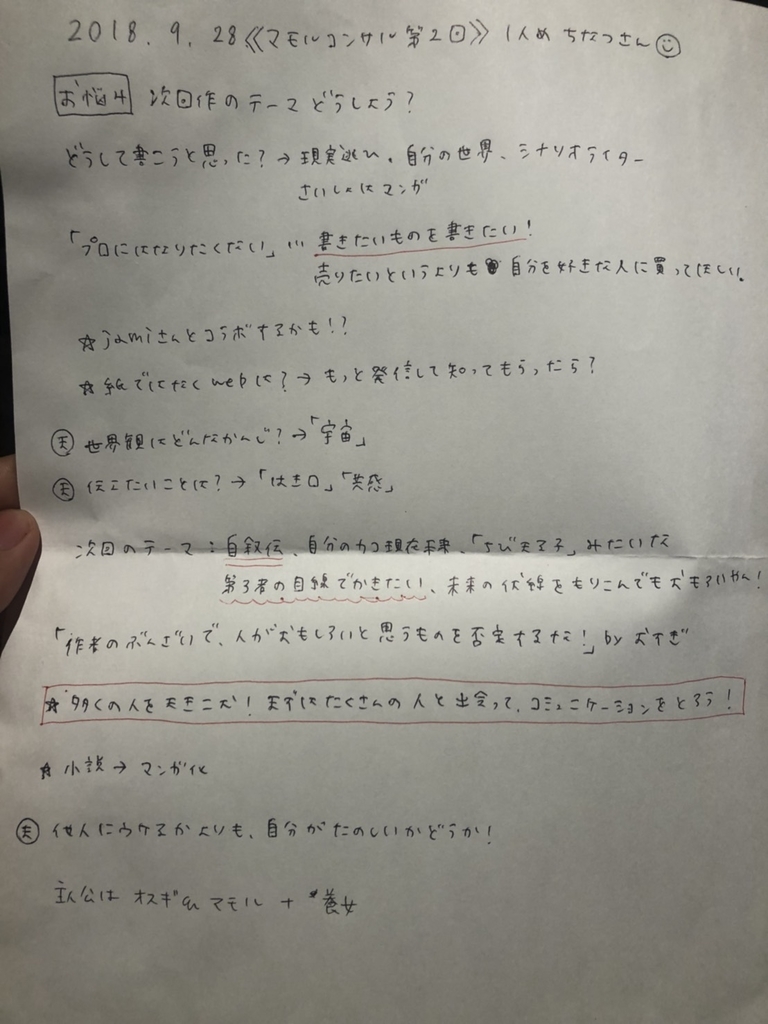 2018.9.28《マモルコンサル第2回》1人め ちなつさん
お悩み 次回作のテーマどうしよう?
どうして書こうと思った?→現実逃ひ、自分の世界、シナリオライター
さいしょはマンガ
「プロにはなりたくない」…書きたいものを書きたい!
売りたいというよりも自分を好きな人に買ってほしい。
☆jamiさんとコラボするかも!?
☆紙ではなくwebは?→もっと発信して知ってもらったら?
世界観はどんなかんじ?→「宇宙」
伝えたいことは?→「はき口」「共感」
次回のテーマ:自叙伝、自分のカコ現在未来、「ちびまる子」みたいな
第3者の目線でかきたい、未来の伏線をもりこんでもおもろいやん!
「作者のぶんざいで、人がおもしろいと思うものを否定するな!」byおすぎ
☆多くの人をまきこお!まずはたくさんの人と出会って、コミュニケーションをとろう!
☆小説→マンガ化
他人にウケるかよりも、自分がたのしいかどうか!
主人公はオスギ マモル + 養女